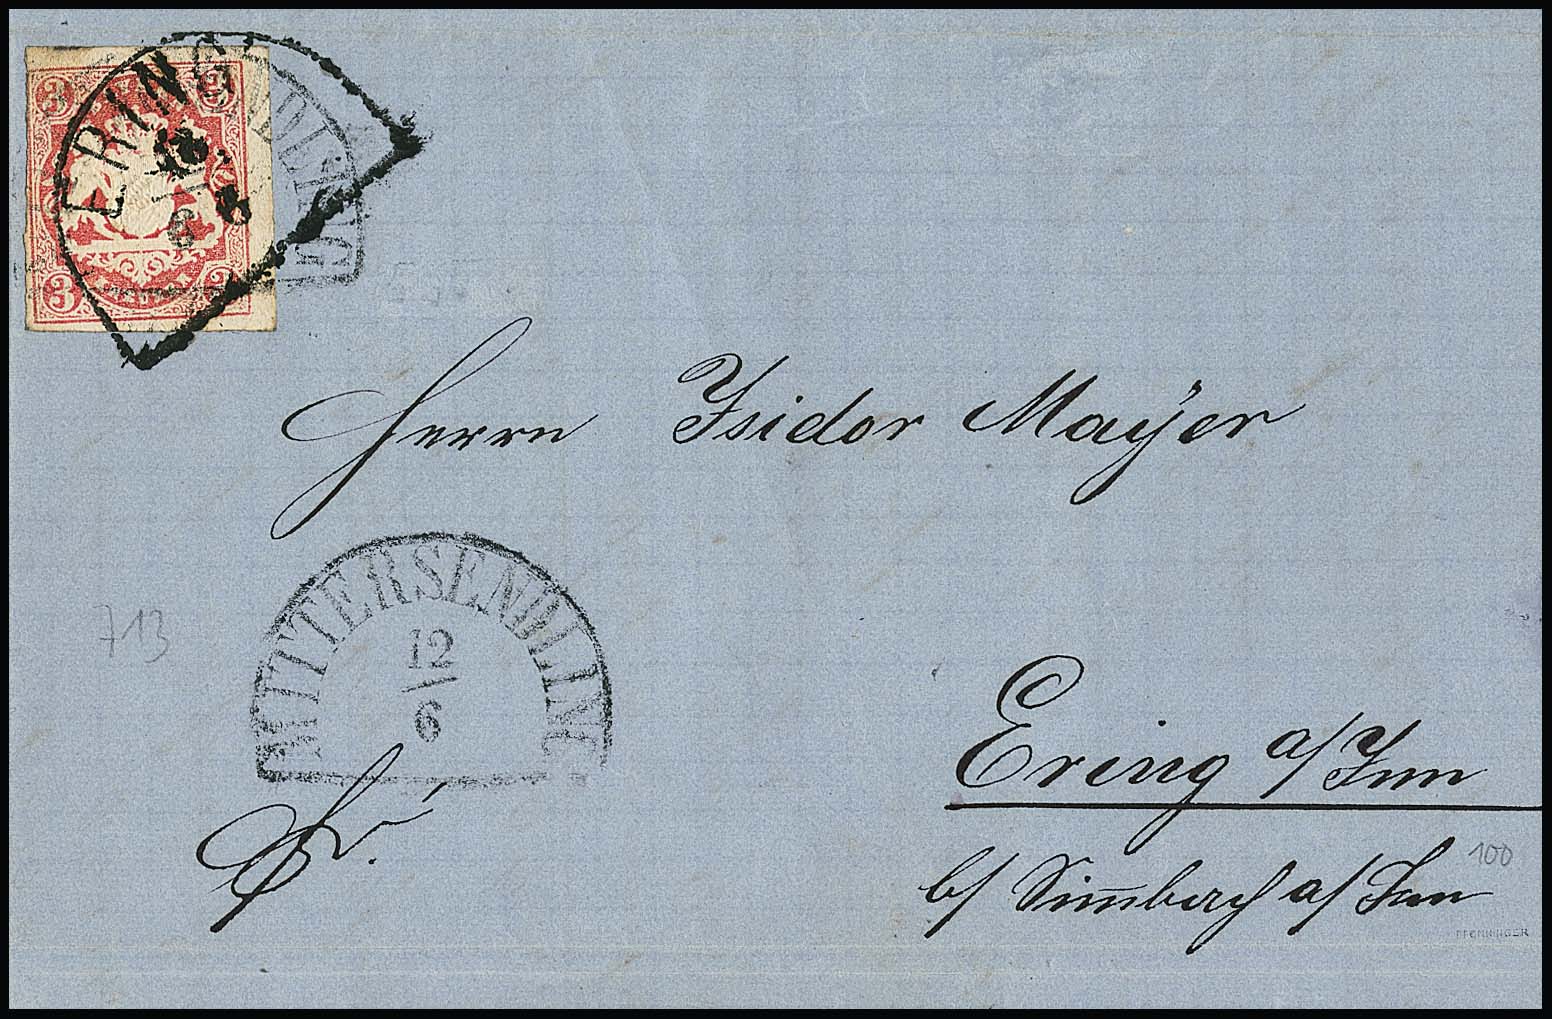 3 3
3
ERING
6
Herrn Isidor Mayer
MITTERSENDLING
12
6
713
Fr.
Ering a/Inn
b/ Simbach a/Inn
100
PFENNINGER